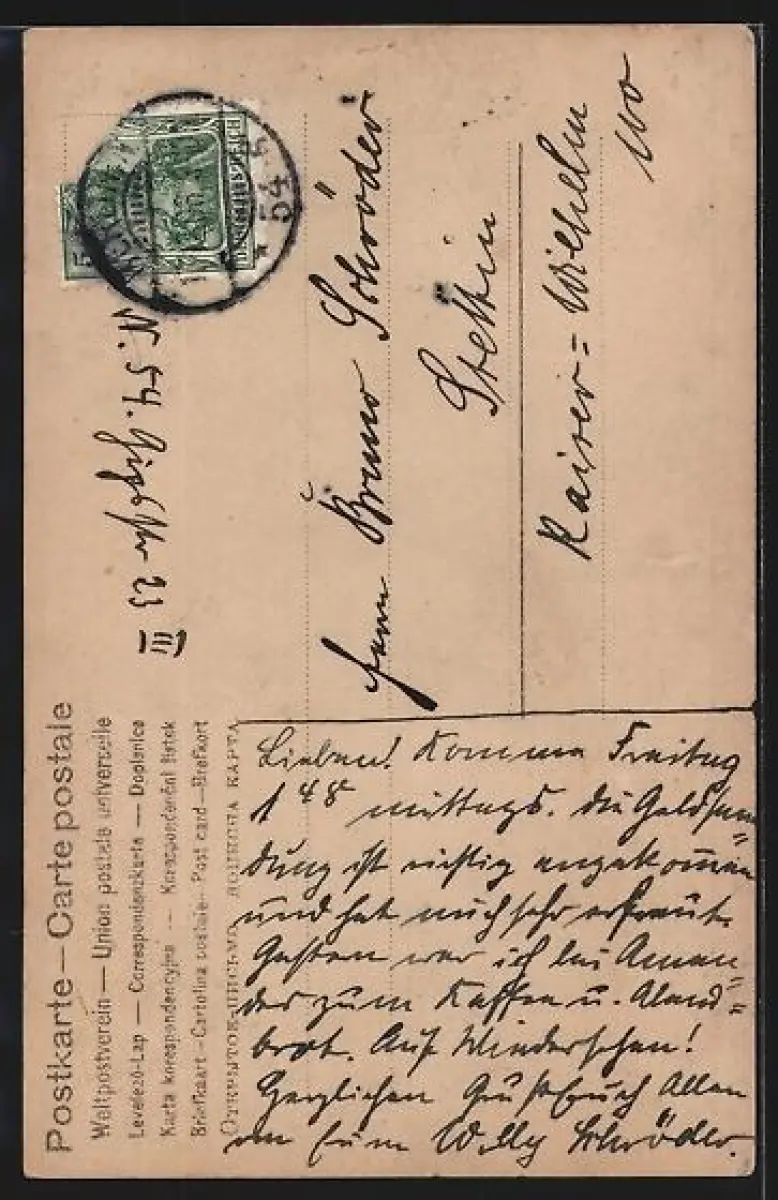 Postkarte — Carte postale
Weltpostverein — Union postale universelle
Levelező-Lap — Correspondenzkarte — Dopisnice
Karta korespondencyjna — Korespondenční lístek
Briefkaart — Cartolina postale — Post card — Brefkort
ОТКРЫТОЕ ПИСЬМО. ДОПИСНА КАРТА
BERLIN
54
DEUTSCHES REICH
5
N. 54. 23
III
Herrn Bruno Schröder
Stettin
Kaiser=Wilhelm
Lieben! Komme Freitag
1 48 mittags. Die Geldsen=
dung ist richtig angekommen
und hat mich sehr erfreut.
Gestern war ich bei Aman=
das zum Kaffee u. Abend=
brot. Auf Wiedersehen!
Herzlichen Gruß Euch Allen
von Eurem Willy Schröder.